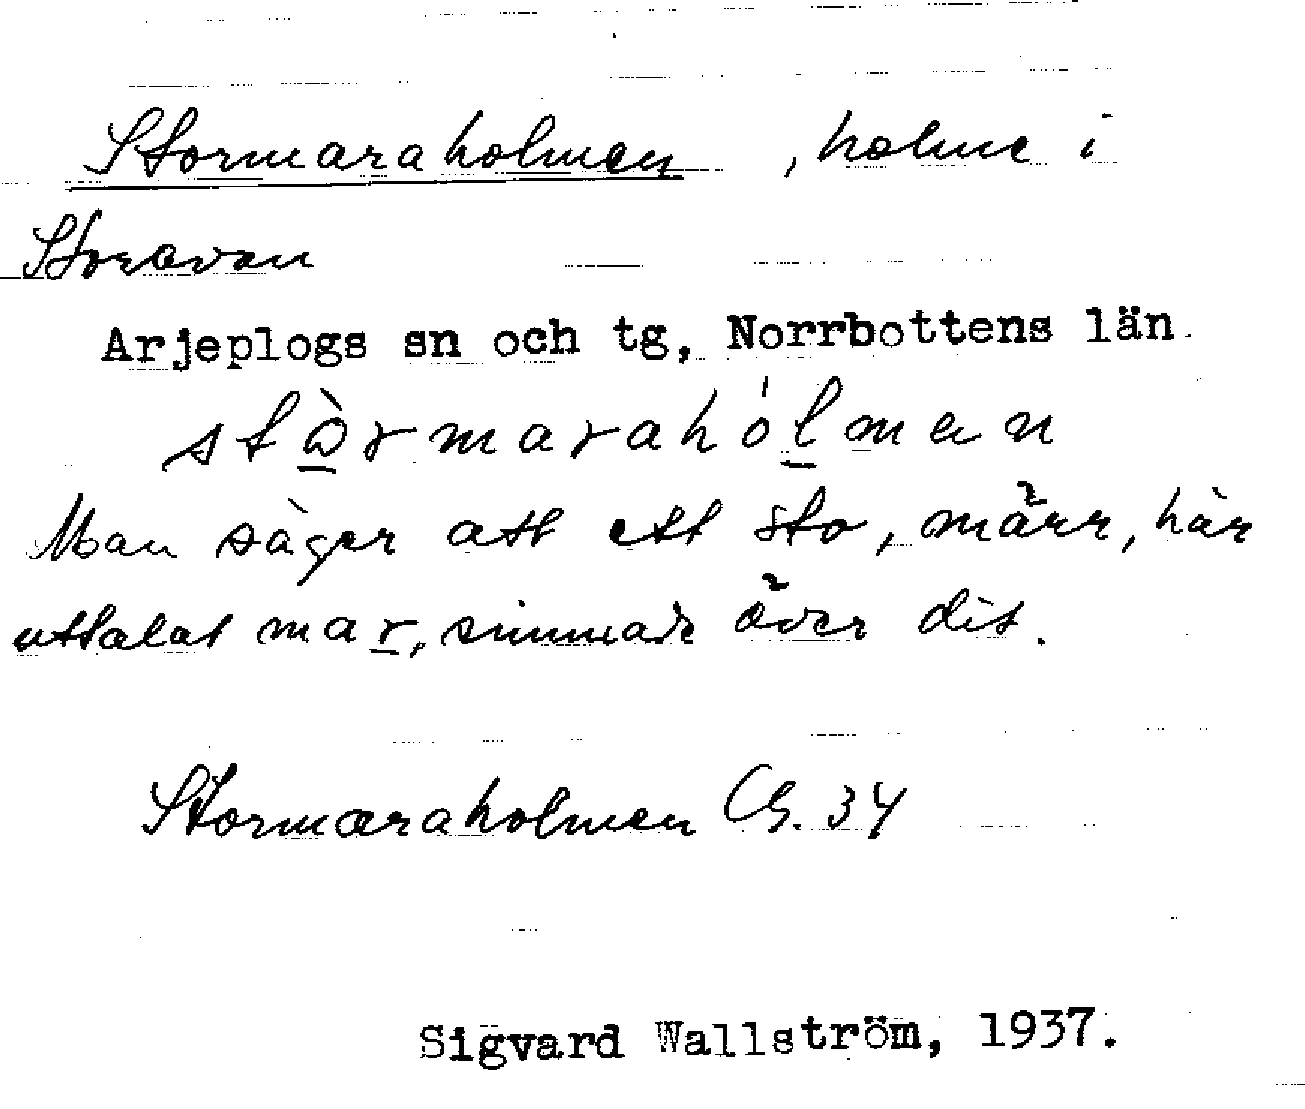 Stormaraholmen, holme i
Storavan
Arjeplogs sn och tg, Norrbottens län.
stɷ̀rmarahólmen
Man säger att ett sto, märr, här
uttalat mar, simmade över dit.
Stormaraholmen GS. 34
Sigvard Wallström, 1937.